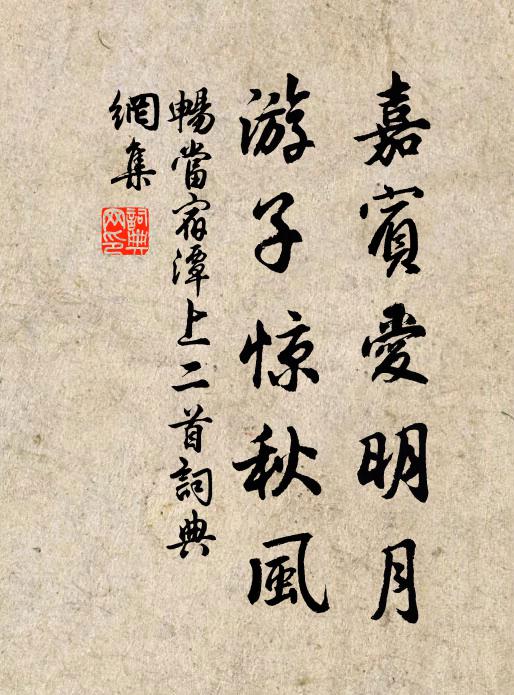 嘉賓愛明月
游子惊秋風
暢當宿潭上二首詞典
網集
詞典网印